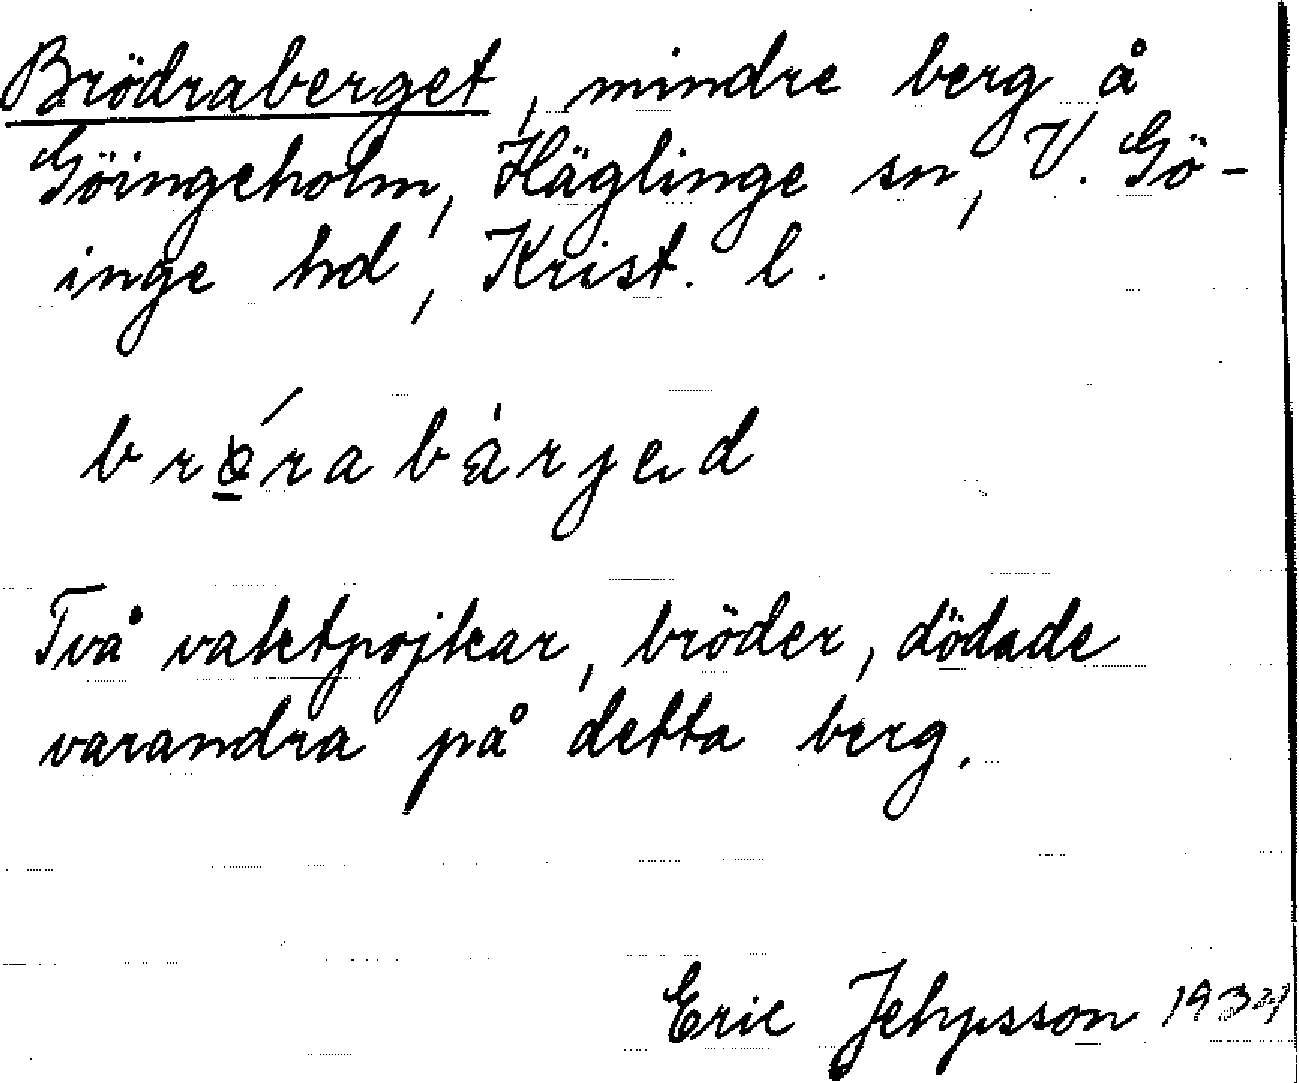 Brödraberget, mindre berg å
Göingeholm, Häglinge sn, V. Gö-
inge hd, Krist. l.
brǿrabárjed
Två vaktpojkar, bröder, dödade
varandra på detta berg.
Eric Jehpsson 1934